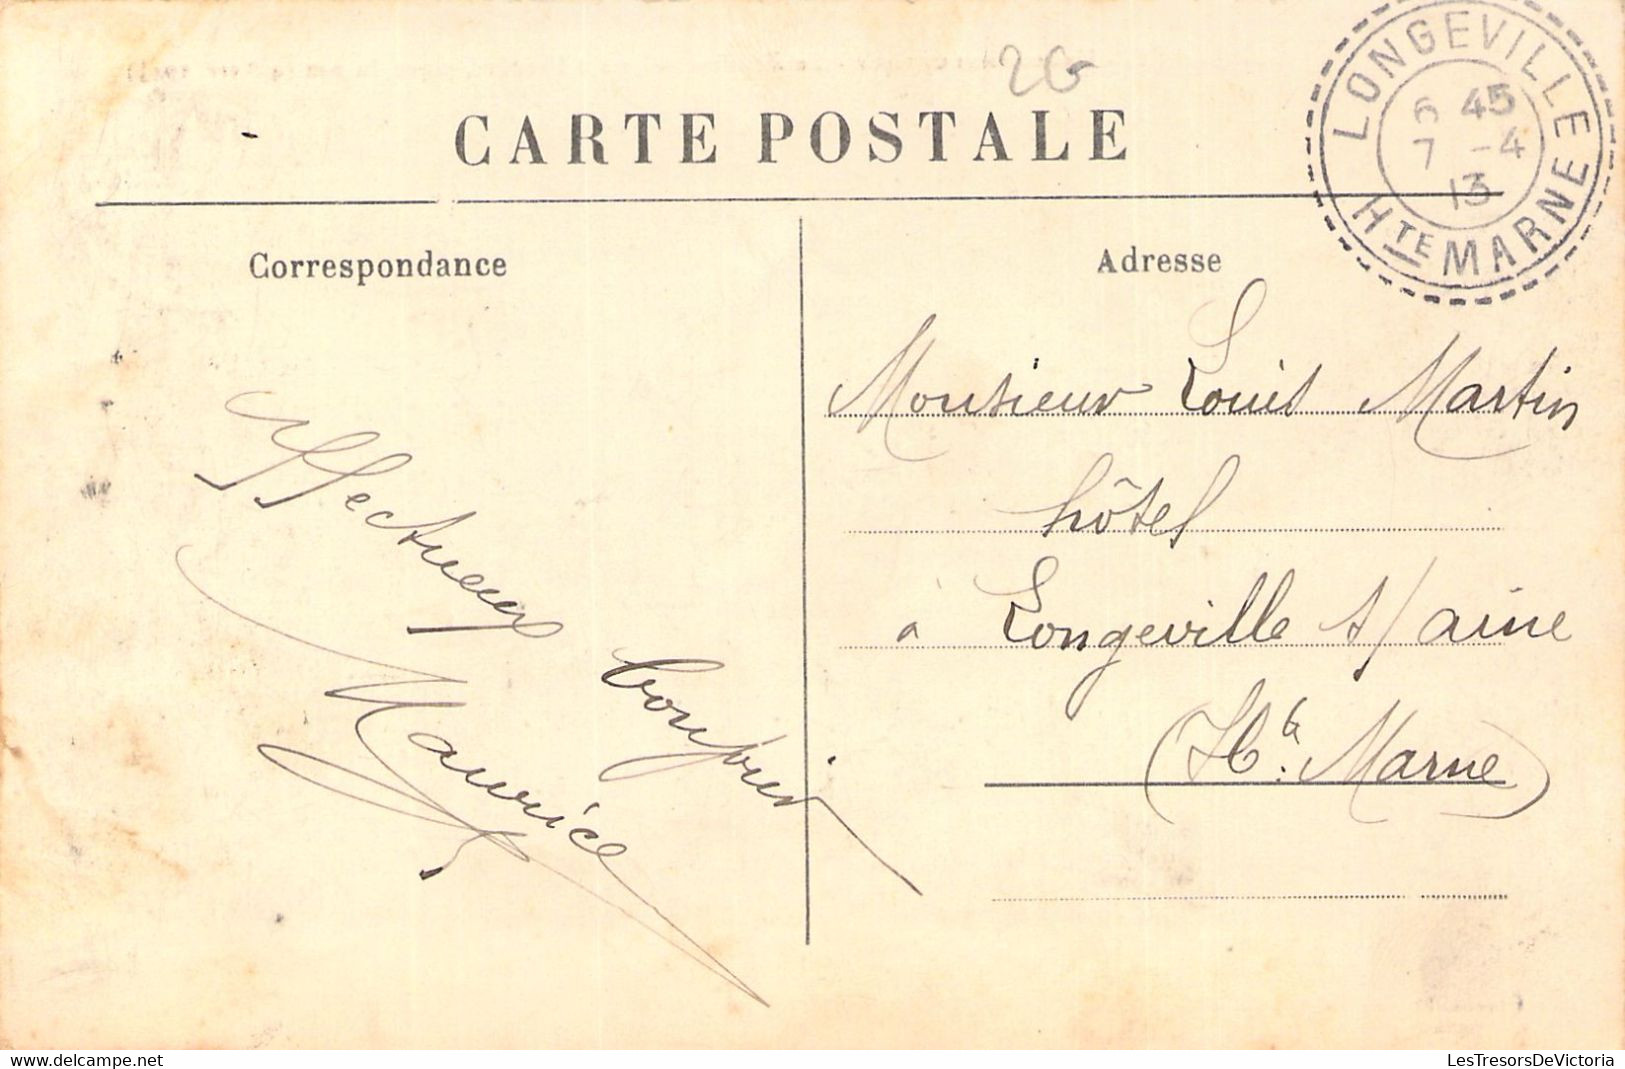 2G
CARTE POSTALE
LONGEVILLE
6 45
7 -4
13
HTE MARNE
Correspondance
Adresse
Affectueux bonjour
Maurice
Monsieur Louis Martin
hôtel
à Longeville s/ aine
(Hte. Marne)
www.delcampe.net
LesTresorsDeVictoria